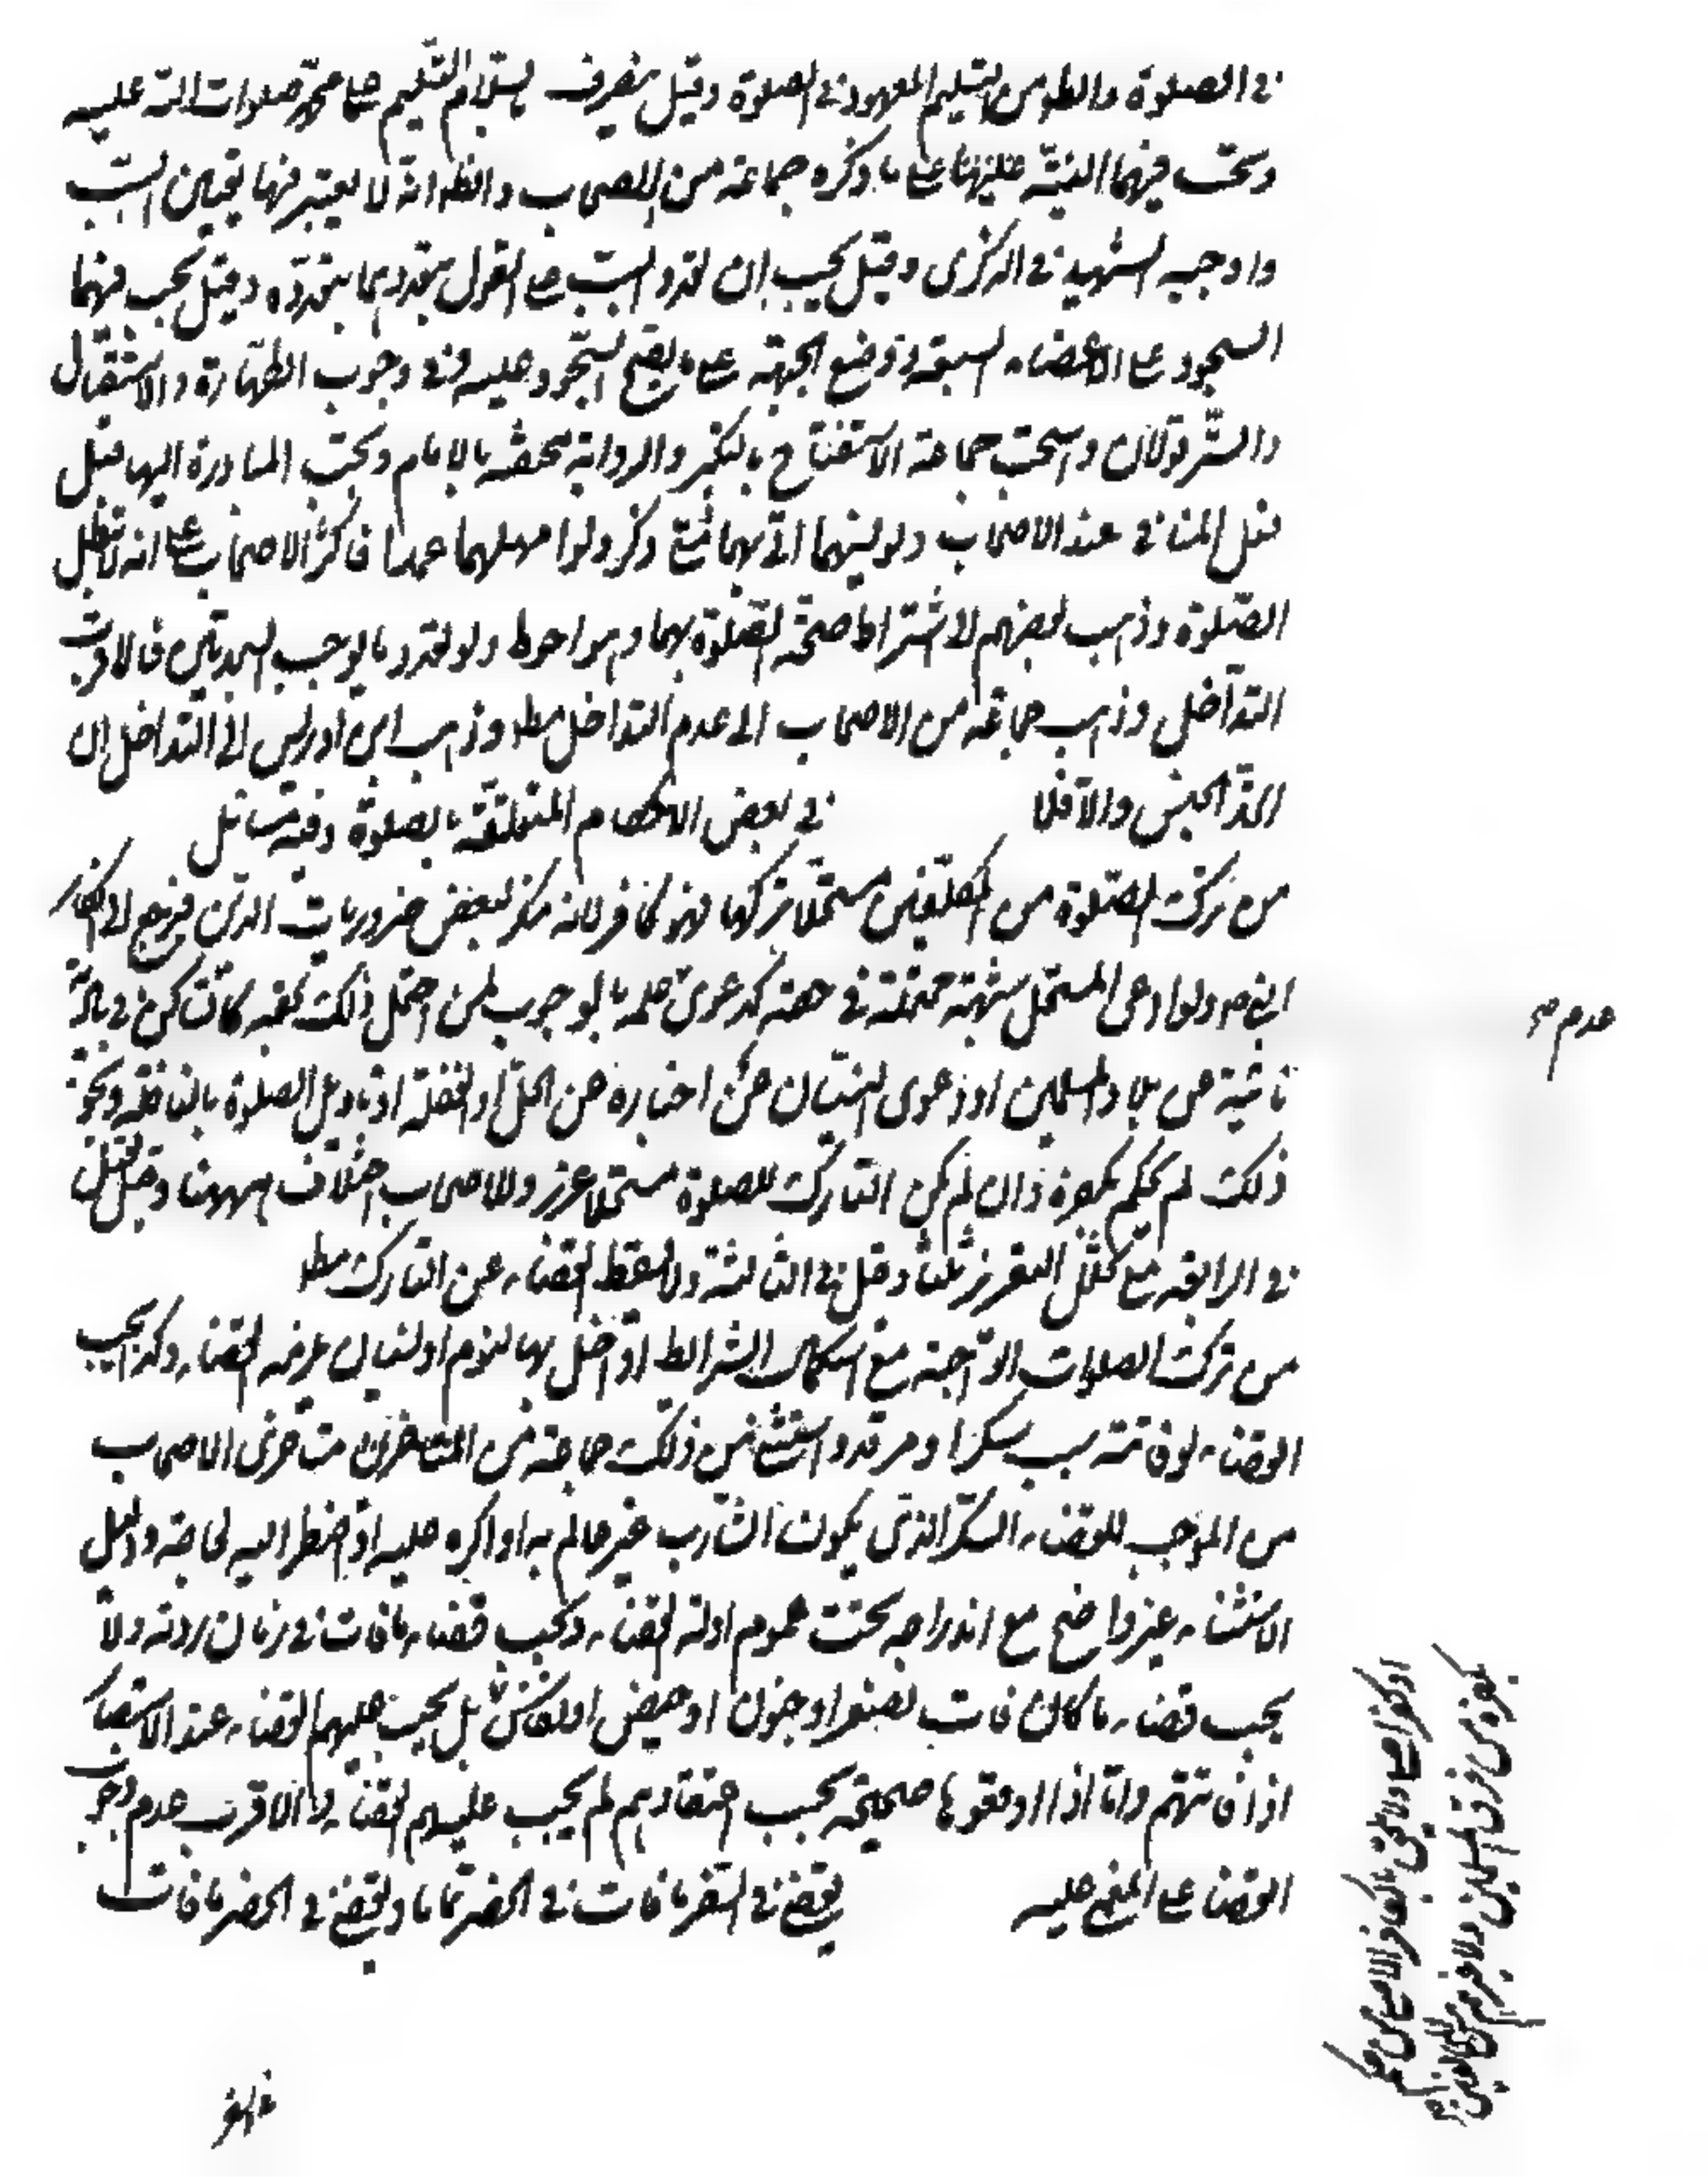 في الصلوة والظ من التسليم المعهود في الصلوة وقيل ينصرف التسليم على محمد صلوات الله عليه
النية على ما ذكره جماعة من الاصحاب والظ انه لا يعتبر فيها تعيين السبب
واوجبه الشهيد في الذكرى وقيل يجب ان تعدد السبب على القول بتعددهما بتعدده وقيل يجب فيهما
السجود على الاعضاء السبعة ووضع الجبهة على ما يصح السجود عليه وفي وجوب الطهارة والاستقبال
والستر قولان واستحب جماعة الاستفتاح بالتكبير والرواية تختصه بالامام وتجب المبادرة اليها قبل
فعل المنافي عند الاصحاب ولو نسيهما اتى بهما متى ذكر ولو اهملهما عمدا فاكثر الاصحاب على انه لا تبطل
الصلوة وذهب بعضهم لاشتراط صحة الصلوة بهما وهو احوط ولو تعدد ما يوجب السجدتين فالاقرب
التداخل وذهب جماعة من الاصحاب الى عدم التداخل مط وذهب ابن ادريس الى التداخل ان
اتحد الجنس والا فلا في بعض الاحكام المتعلقة بالصلوة وفيه مسائل
من ترك الصلوة من المكلفين مستحلا تركها فهو كافر لانه منكر لبعض ضروريات الدين فيرجع لانكار
النبي ص ولو ادعى المستحل شبهة محتملة في حقه كدعوى علمه بالوجوب لمن احتمل ذلك في حقه كالساكن في بادية
نائية عن بلاد المسلمين او دعوى النسيان عن اخباره عن الحل او الغفلة او تاويل الصلوة بالنافلة ونحو
ذلك لم يحكم بكفره وان لم يكن التارك للصلوة مستحلا عزر وللاصحاب اختلاف ههنا وقيل يقتل
في الرابعة مع تخلل التعزير ثلثا وقيل في الثالثة ولا يسقط القضاء عن التارك مط
من ترك الصلوات الواجبة مع استكمال الشرائط او اخل بها لنوم او نسيان يلزمه القضاء وكذا يجب
القضاء لو فاتته بسبب سكر او مرقد واستثنى من ذلك جماعة من المتاخرين متاخرى الاصحاب
من الموجب للقضاء السكر الذي يكون الشارب غير عالم به او اكره عليه او اضطر اليه لحاجة ودليل
الاستثناء غير واضح مع اندراجه تحت عموم ادلة القضاء ويجب قضاء ما فات في زمان ردته ولا
يجب قضاء ما كان فات بصغر او جنون او حيض او نفاس بل يجب عليهم القضاء عند الاستبصار
اذا فاتتهم واما اذا اوقعوها صحيحة بحسب اعتقادهم لم يجب عليهم القضاء والاقرب عدم وجوب
القضاء على المغمى عليه يقضى في السفر ما فات في الحضر تماما ويقضى في الحضر ما فات
عدم صح
او كفر اصلى ولا يلحق بالكافر الاصلى من حكم
بكفره من فرق المسلمين
في السفر